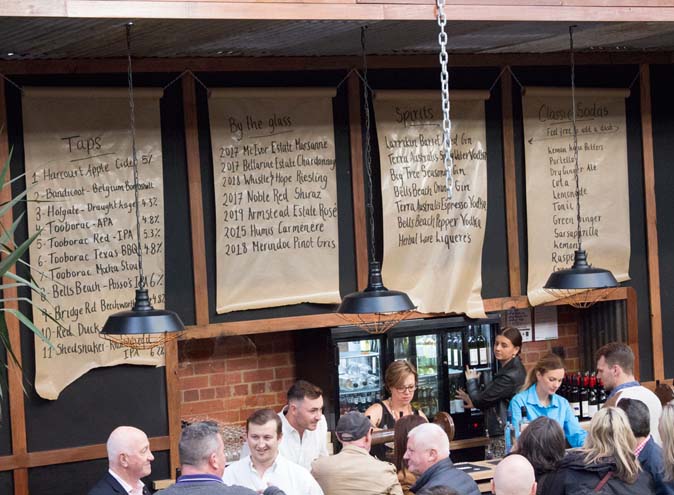 Taps
1 Harcourt Apple Cider 5%
2 - Bandicoot - Belgium
3 - Holgate - Draught Lager
4 Tooborac - APA 4.8%
5 Tooborac Red - IPA 5.3%
6 Tooborac Texas BBQ 4.8%
7 Tooborac Mocha Stout
8 Bells Beach - Posso's IPA 6%
9 Bridge Rd Beechworth
10 Red Duck
11 Shedshaker
IPA
By the glass
2017 McIvor Estate Marsanne
2017 Bellarine Estate Chardonnay
2018 Whistley Hope Riesling
2017 Noble Red Shiraz
2019 Armstead Estate Rose
2015 Humis Carménère
2018 Merindoc Pinot Gris
Spirits
Larrikin Barrel Gin
Terra Australis Vodka
Big Tree Seasons Gin
Bells Beach Gin
Terra Australis Espresso Vodka
Bells Beach Pepper Vodka
Herbal Lore Liqueres
Classic Sodas
Feel free to add a dash
Lemon Lime Bitters
Portello
Dry Ginger Ale
Cola
Lemonade
Tonic
Green Ginger
Sarsaparilla
Lemon